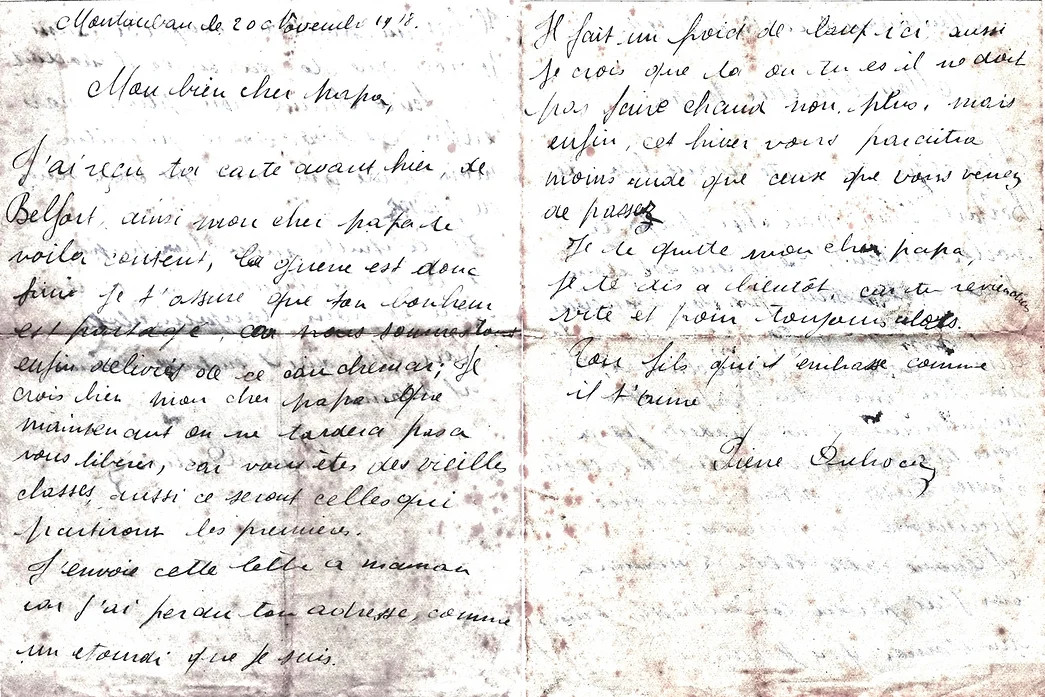 Montauban le 20 Novembre 1918.
Mon bien cher papa,
J'ai reçu ta carte avant hier, de
Belfort, ainsi mon cher papa te
voila content, la guerre est donc
finie je t'assure que ton bonheur
est partagé, car nous sommes tous
enfin délivrés de ce cauchemar; Je
crois bien mon cher papa que
maintenant on ne tardera pas a
vous liberer, car vous êtes des vieilles
classes, aussi ce seront celles qui
partiront les premieres.
J'envoie cette lettre a maman
car j'ai perdu ton adresse, comme
un etourdi que je suis.
Il fait un froid de loup ici aussi
je crois que la ou tu es il ne doit
pas faire chaud non plus, mais
enfin, cet hiver vous paraitra
moins rude que ceux que vous venez
de passez
Je te quitte mon cher papa,
je te dis a bientôt, car tu reviendras
vite et pour toujours alors.
Ton fils qui t'embrasse comme
il t'aime
Pierre